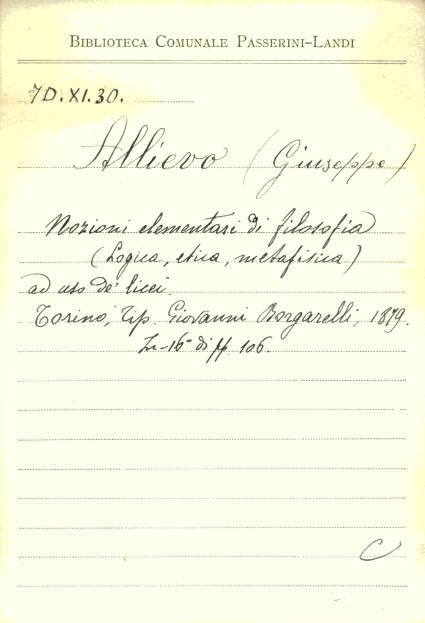 BIBLIOTECA COMUNALE PASSERINI-LANDI
7D.XI.30.
Allievo (Giuseppe)
Nozioni elementari di filosofia
(Logica, etica, metafisica)
ad uso de' licei.
Torino, Tip. Giovanni Borgarelli, 1879.
In-16° di pp. 106.
C